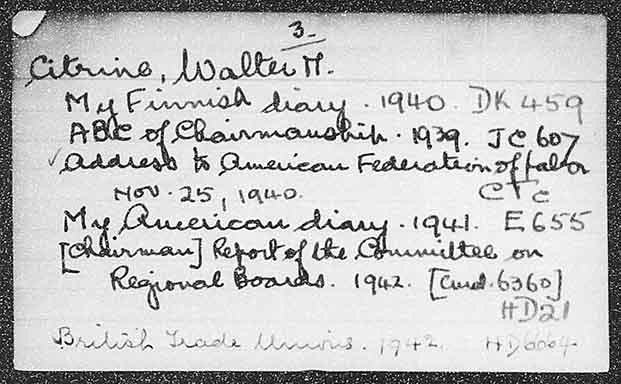 3.
Citrine, Walter M.
My Finnish diary. 1940. DK 459
ABC of Chairmanship. 1939. JC 607
✓ Address to American Federation of Labor
Nov. 25, 1940. CTC
My American diary. 1941. E655
[Chairman] Report of the Committee on
Regional Boards. 1942. [Cmd. 6360]
HD21
British Trade Unions. 1942. HD6664